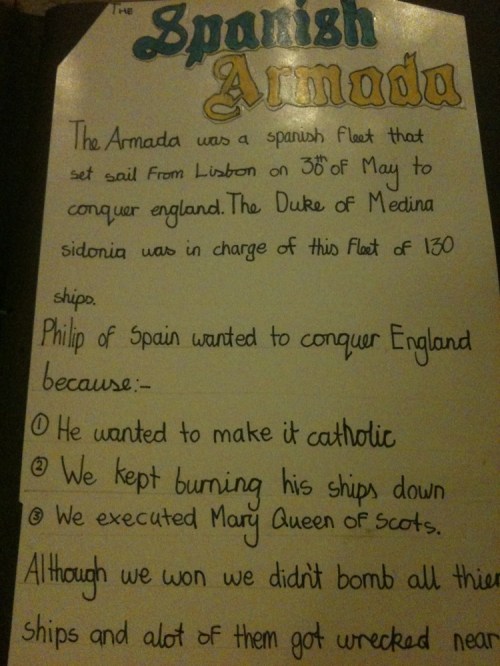 THE
Spanish
Armada
The Armada was a spanish Fleet that
set sail From Lisbon on 30th of May to
conquer england. The Duke of Medina
sidonia was in charge of this Fleet of 130
ships.
Philip of Spain wanted to conquer England
because:-
① He wanted to make it catholic
② We kept burning his ships down
③ We executed Mary Queen of Scots.
Although we won we didn't bomb all thier
ships and alot of them got wrecked near